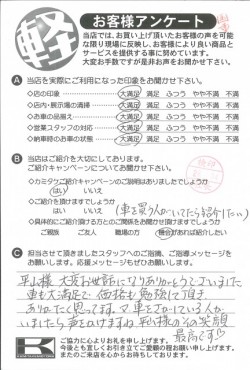 軽
お客様アンケート
当店では、お買い上げ頂いたお客様の声を可能
な限り現場に反映し、お客様により良い商品と
サービスを提供する事に努めています。
大変お手数ですが是非お声をお聞かせ下さい。
A 当店を実際にご利用になった印象をお聞かせ下さい。
◇店の印象 大満足 満足 ふつう やや不満 不満
◇店内・展示場の清掃 大満足 満足 ふつう やや不満 不満
◇お車の品揃え 大満足 満足 ふつう やや不満 不満
◇営業スタッフの対応 大満足 満足 ふつう やや不満 不満
◇納車時のお車の状態 大満足 満足 ふつう やや不満 不満
B 当店はご紹介を大切にしております。
ご紹介キャンペーンについてお聞かせ下さい。
◇カミタケご紹介キャンペーンのご説明はありましたでしょうか
はい いいえ
◇ご紹介を頂けますでしょうか
はい いいえ (車を買う人がいてたら紹介したい)
◇具体的にご紹介頂ける方とのご関係をお聞かせ頂けますでしょうか
ご親族 ご友人 職場の方 ご近所の方 その他
C 担当させて頂きましたスタッフへのご指摘、ご指導メッセージを
お願いします。応援メッセージもぜひお願いします。
平山様 大変お世話になりありがとうございました
車も大満足で 価格も勉強して頂き
ありがたく思ってます。又車をさがしている人が
いましたら 声をかけますね 平山様のその笑顔
最高です
K
ご協力に心よりお礼を申し上げます。
今後とも宜しくお引き立てご愛顧の程お願い申し上げます。
またのご来店を心からお待ちしております。